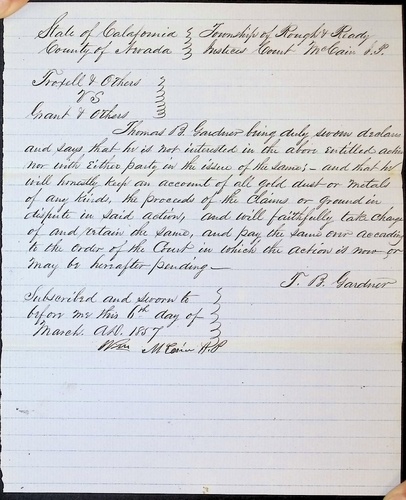 State of Calafornia } Township of Rough & Ready
County of Nevada } Justices Court McCain J.P.
Troxell & Others }
VS }
Grant & Others }
Thomas B. Gardner being duly sworn declares
and says that he is not interested in the above entitled action
nor with Either party in the issue of the same; – and that he
will honestly keep an account of all gold dust or metals
of any kinds, the proceeds of the Claims or ground in
dispute in said action, and will faithfully take charge
of and retain the same, and pay the same over according
to the order of the Court in which the action is now or
may be hereafter pending –
T. B. Gardner
Subscribed and sworn to }
before me this 6th day of }
March. AD. 1857 }
Wm McCain J.P